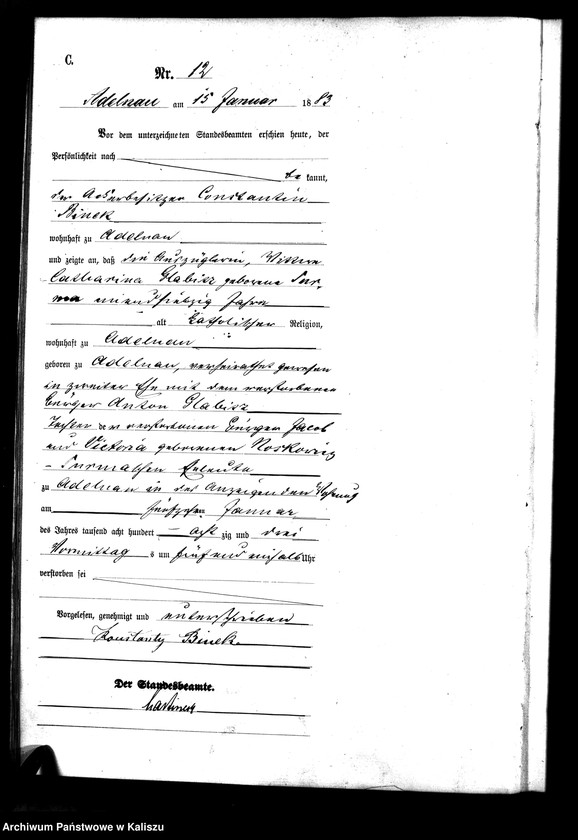 C.
Nr. 12
Adelnau am 15 Januar 1883
Vor dem unterzeichneten Standesbeamten erschien heute, der
Persönlichkeit nach
be kannt,
der Ackerbesitzer Constantin
Binek
wohnhaft zu Adelnau
und zeigte an, daß die Auszüglerin, Wittwe
Catharina Glabisz geborene
Jahre
alt katholischer Religion,
wohnhaft zu Adelnau
geboren zu Adelnau, verheirathet gewesen
in zweiter Ehe mit dem verstorbenen
Bürger Anton Glabisz
Tochter der verstorbenen Bürger Jacob
und Victoria geborenen
Eheleute
zu Adelnau in des Anzeigenden Wohnung
am fünfzehn Januar
des Jahres tausend acht hundert acht zig und drei
Vormittag s um fünf und einhalb Uhr
verstorben sei
Vorgelesen, genehmigt und unterschrieben
Konstanty Binek
Der Standesbeamte.
Archiwum Państwowe w Kaliszu